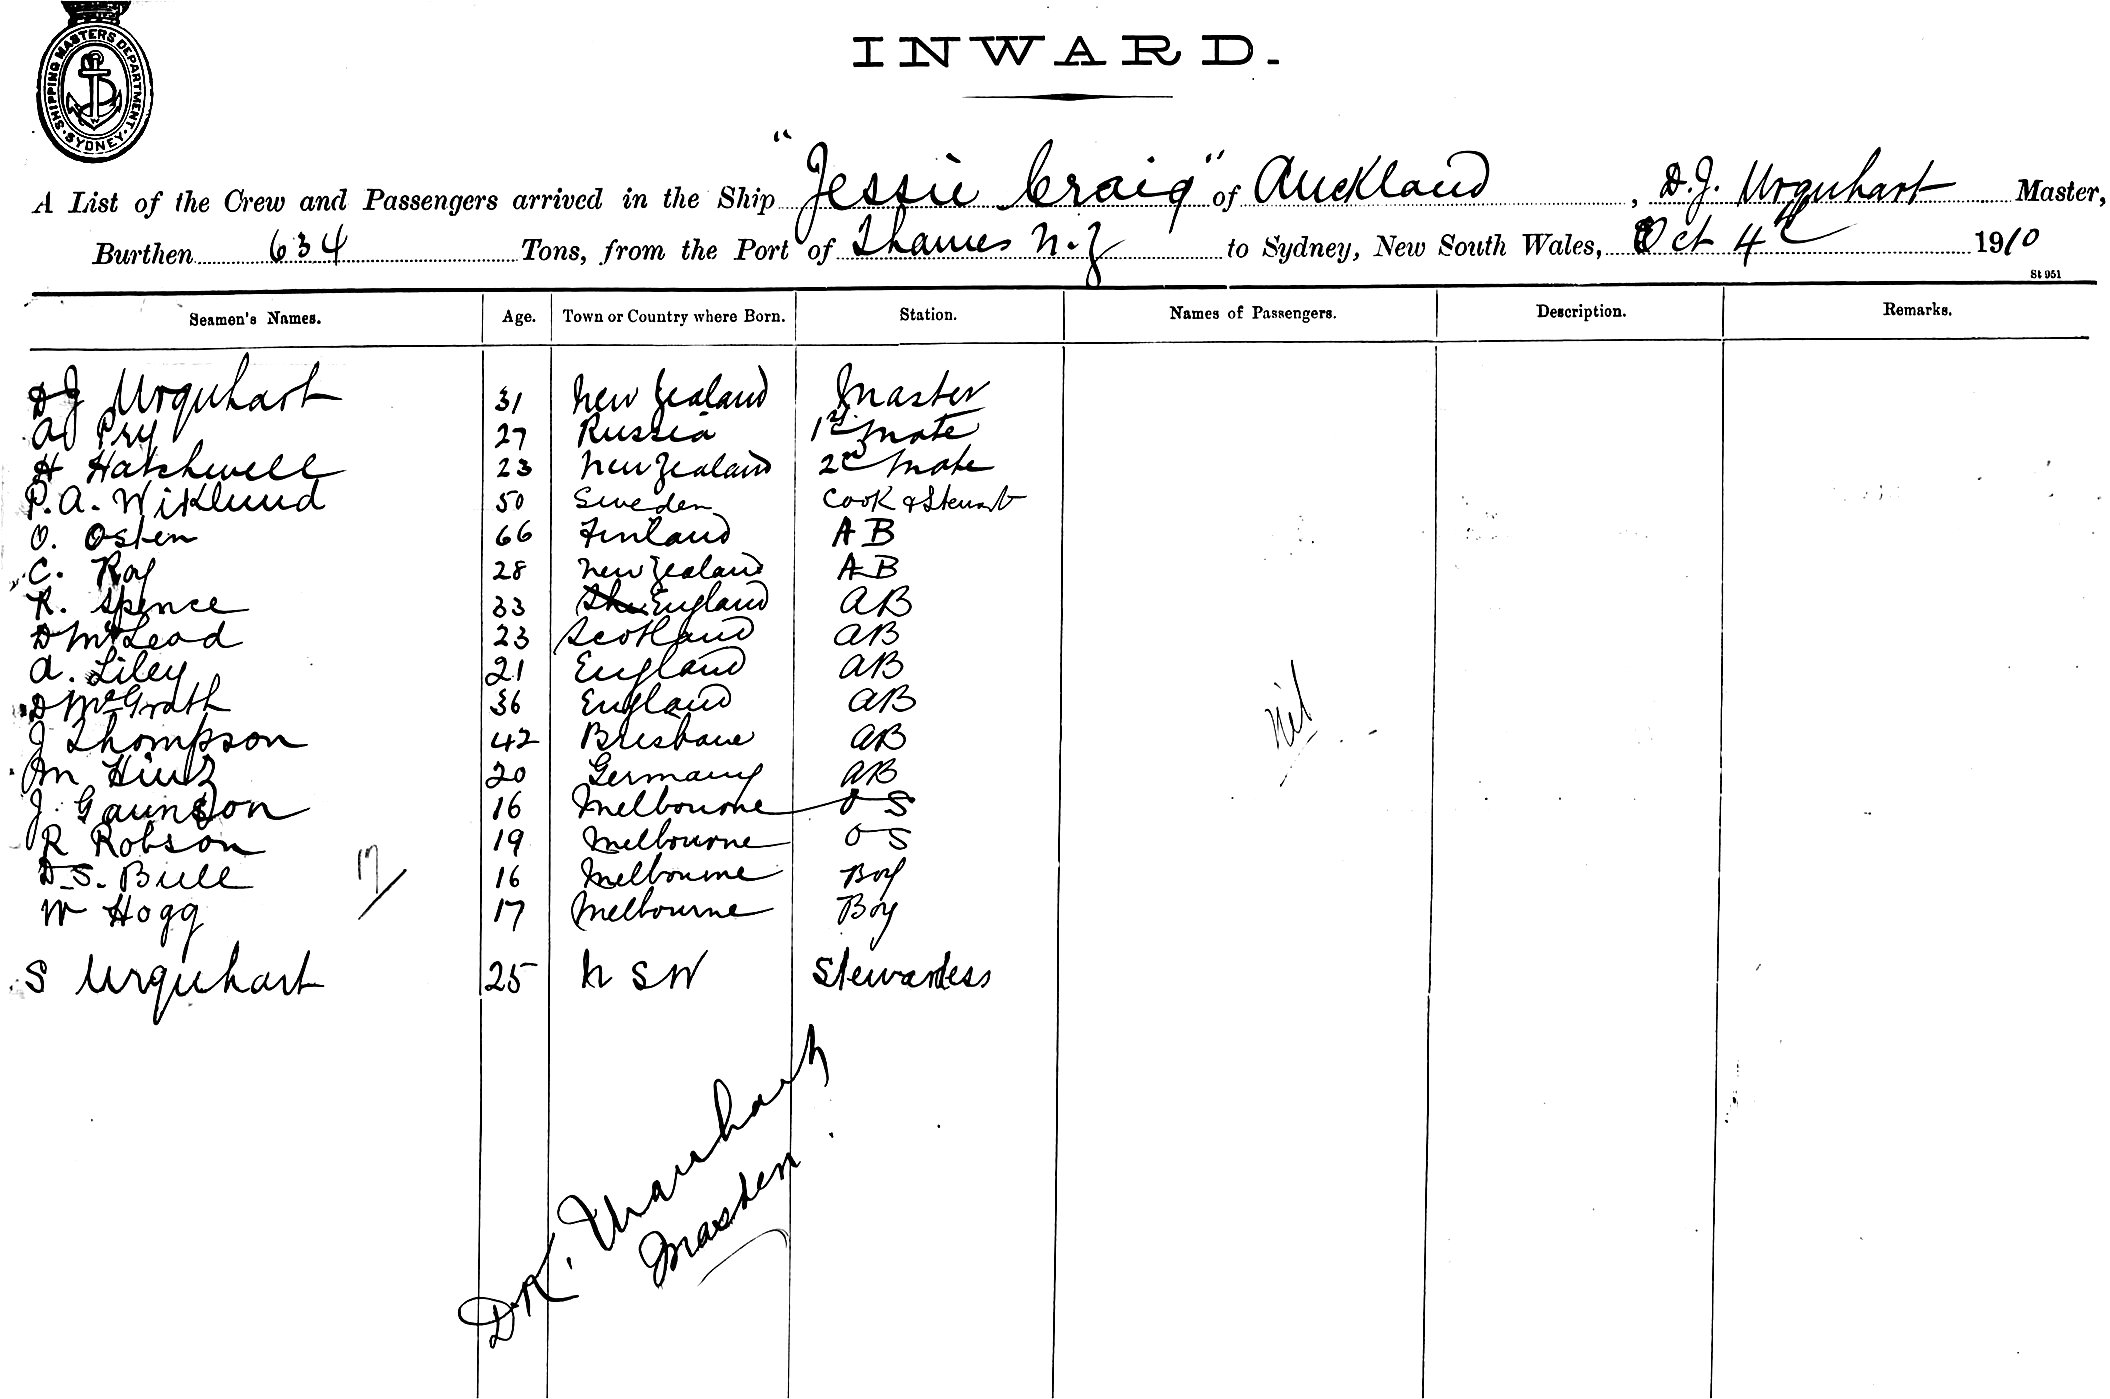 INWARD.
SHIPPING MASTERS DEPARTMENT. SYDNEY
A List of the Crew and Passengers arrived in the Ship "Jessie Craig" of Auckland, D.J. Urquhart Master,
Burthen 634 Tons, from the Port of Thames N.Z to Sydney, New South Wales, Oct 4th 1910
St 951
Seamen's Names. Age. Town or Country where Born. Station. Names of Passengers. Description. Remarks.
DJ Urquhart 31 New Zealand Master
A Pry 27 Russia 1st Mate
H Hatchwell 23 New Zealand 2nd Mate
P.A. Wiklund 50 Sweden Cook & Steward
O. Osten 66 Finland AB
C. Roy 28 New Zealand AB
R. Spence 33 England AB
D McLeod 23 Scotland AB
A. Liley 21 England AB
D McGrath 36 England AB
J Thompson 42 Brisbane AB
Nil
M Hinz 20 Germany AB
J. Gaunson 16 Melbourne O S
R Robson 19 Melbourne O S
D.S. Bull 16 Melbourne Boy
17/
W Hogg 17 Melbourne Boy
S Urquhart 25 N S W Stewardess
Master